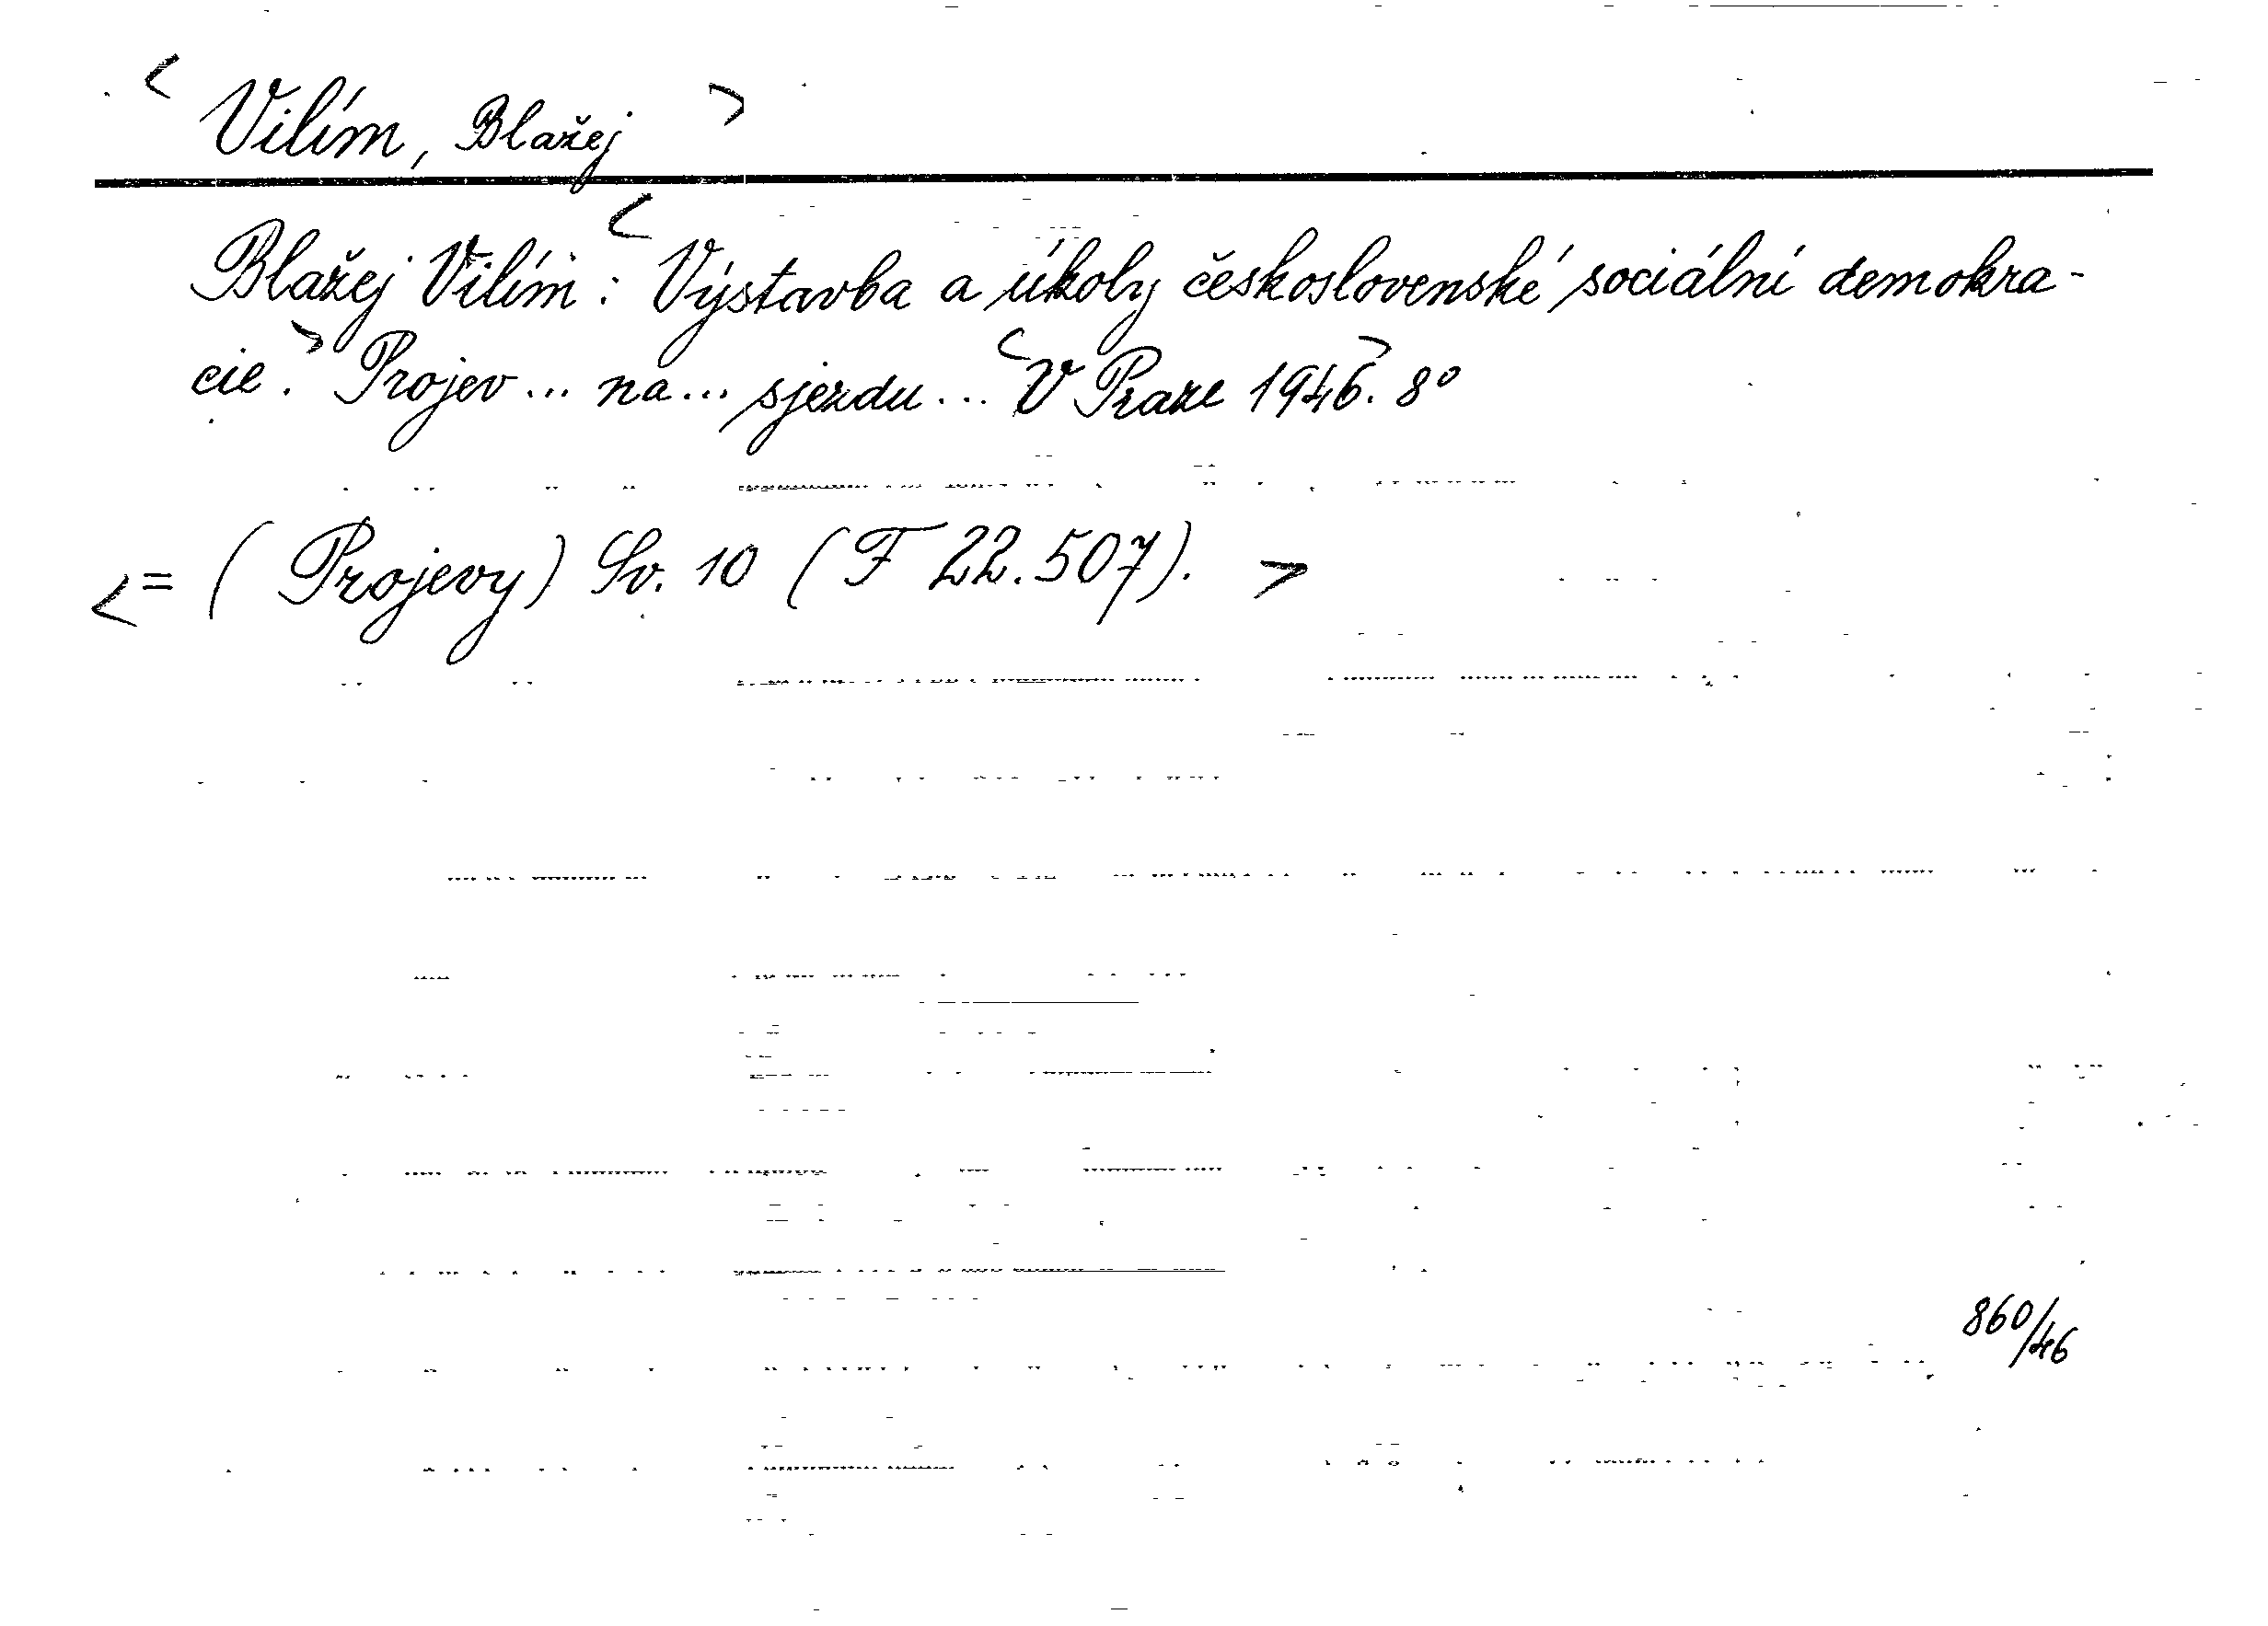 < Vilím, Blažej >
Blažej Vilím: < Výstavba a úkoly československé sociální demokra-
cie. > Projev... na... sjezdu... < V Praze 1946. > 8°
< = (Projevy) Sv. 10 (F 22.507). >
860/46